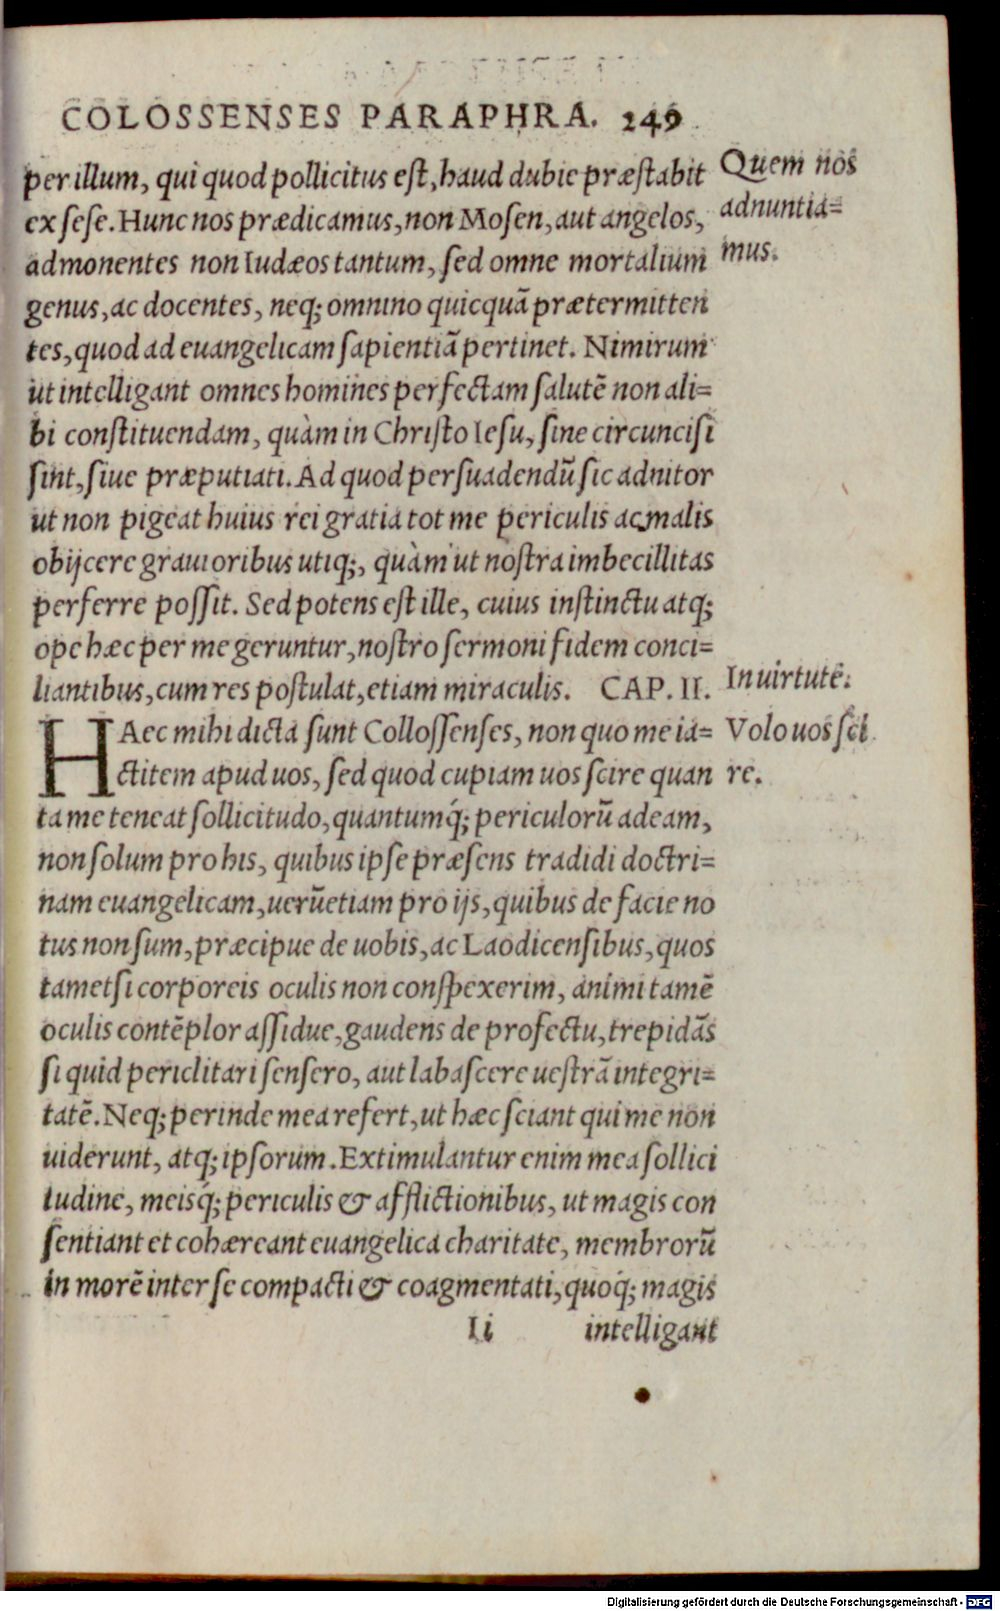 COLOSSENSES PARAPHRA. 249
per illum, qui quod pollicitus est, haud dubie præstabit
ex sese. Hunc nos prædicamus, non Mosen, aut angelos,
admonentes non Iudæos tantum, sed omne mortalium
genus, ac docentes, neq; omnino quicquā prætermitten
tes, quod ad euangelicam sapientiā pertinet. Nimirum
ut intelligant omnes homines perfectam salutē non ali=
bi constituendam, quàm in Christo Iesu, siue circuncisi
sint, siue præputiati. Ad quod persuadendū sic adnitor
ut non pigeat huius rei gratia tot me periculis ac malis
obijcere grauioribus utiq;, quàm ut nostra imbecillitas
perferre possit. Sed potens est ille, cuius instinctu atq;
ope hæc per me geruntur, nostro sermoni fidem conci=
liantibus, cum res postulat, etiam miraculis. CAP. II.
HAec mihi dicta sunt Collossenses, non quo me ia=
ctitem apud uos, sed quod cupiam uos scire quan
ta me teneat sollicitudo, quantumq́; periculorū adeam,
non solum pro his, quibus ipse præsens tradidi doctri=
nam euangelicam, uerūetiam pro ijs, quibus de facie no
tus non sum, præcipue de uobis, ac Laodicensibus, quos
tametsi corporeis oculis non conspexerim, animi tamē
oculis contēplor assidue, gaudens de profectu, trepidās
si quid periclitari sensero, aut labascere uestrā integri=
tatē. Neq; perinde mea refert, ut hæc sciant qui me non
uiderunt, atq; ipsorum. Extimulantur enim mea sollici
tudine, meisq́; periculis & afflictionibus, ut magis con
sentiant et cohæreant euangelica charitate, membrorū
in morē inter se compacti & coagmentati, quoq́; magis
Ii intelligant
Quem nos
adnuntia=
mus.
In uirtute.
Volo uos sci
re.
Digitalisierung gefördert durch die Deutsche Forschungsgemeinschaft - DFG